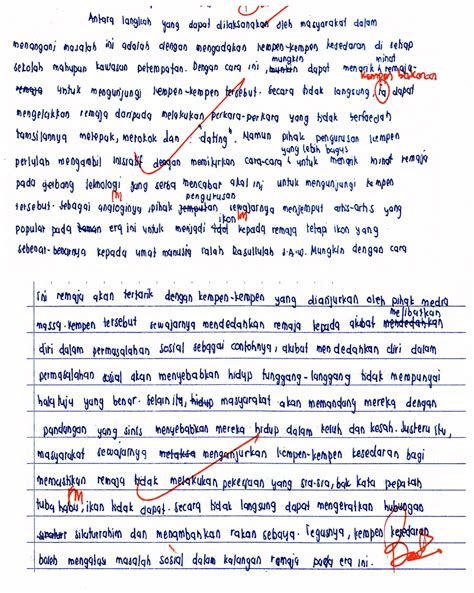 Antara langkah yang dapat dilaksanakan oleh masyarakat dalam
menangani masalah ini adalah dengan mengadakan kempen-kempen kesedaran di setiap
sekolah mahupun kawasan petempatan. Dengan cara ini, mungkin dapat menarik minat remaja-
remaja untuk mengunjungi kempen-kempen tersebut. Secara tidak langsung, ia dapat
kempen bukanan
mengelakkan remaja daripada melakukan perkara-perkara yang tidak berfaedah
tamsilannya melepak, merokok dan "dating". Namun pihak pengurusan kempen
perlulah mengambil inisiatif dengan memikirkan cara-cara yang lebih bagus untuk menarik minat remaja
pada gerbang teknologi yang serba mencabar akal ini untuk mengunjungi kempen
tersebut. Sebagai anologinya, pihak pengurusan sewajarnya menjemput artis-artis yang
popular pada era ini untuk menjadi ikon kepada remaja tetapi ikon yang
sebenar-benarnya kepada umat manusia ialah Rasullulah S.A.W. Mungkin dengan cara
ini remaja akan tertarik dengan kempen-kempen yang dianjurkan oleh pihak media
massa. Kempen tersebut sewajarnya mendedahkan remaja kepada akibat melibatkan
diri dalam permasalahan sosial sebagai contohnya, akibat mendedahkan diri dalam
permasalahan sosial akan menyebabkan hidup tunggang-langgang tidak mempunyai
halatuju yang benar. Selain itu, hidup masyarakat akan memandang mereka dengan
pandangan yang sinis menyebabkan mereka hidup dalam keluh dan kesah. Justeru itu,
masyarakat sewajarnya menganjurkan kempen-kempen kesedaran bagi
memastikan remaja tidak melakukan pekerjaan yang sia-sia, bak kata pepatah
tuba habis, ikan tidak dapat. Secara tidak langsung dapat mengeratkan hubungan
silaturrahim dan menambahkan rakan sebaya. Tegasnya, kempen kesedaran
boleh mengatasi masalah sosial dalam kalangan remaja pada era ini.